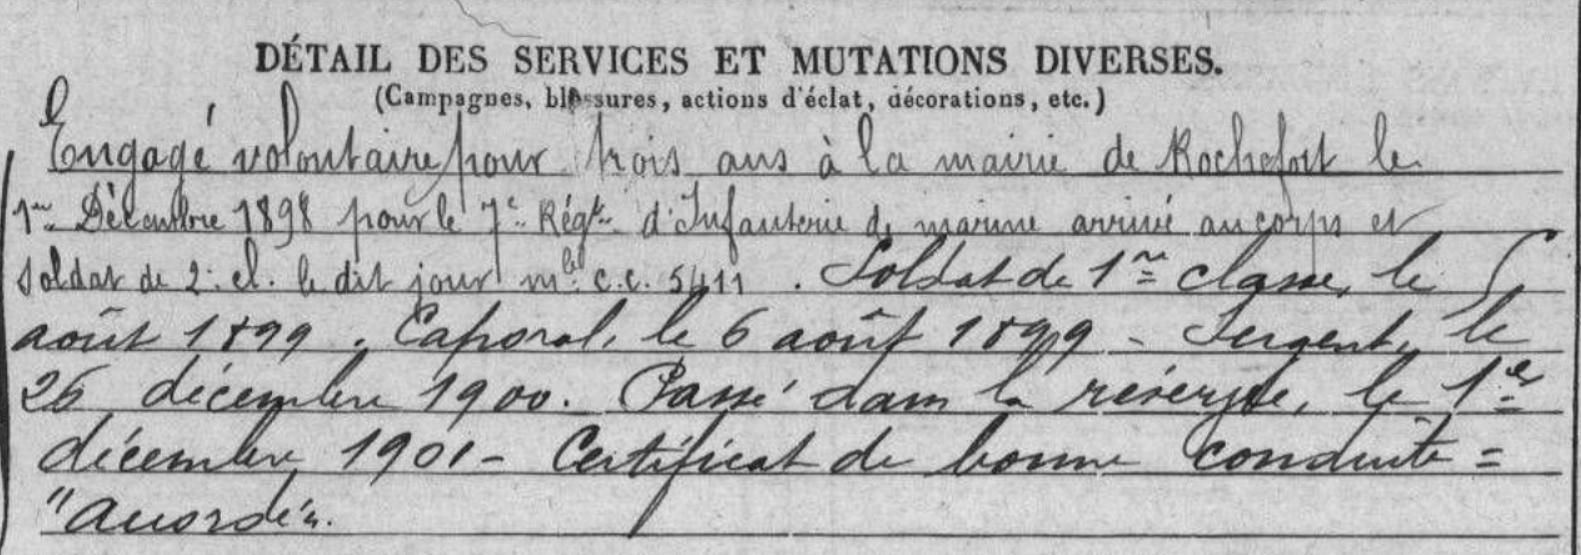 DÉTAIL DES SERVICES ET MUTATIONS DIVERSES.
(Campagnes, blessures, actions d'éclat, décorations, etc.)
Engagé volontaire pour trois ans à la mairie de Rochefort le
1er Décembre 1898 pour le 7e Régt d'Infanterie de marine arrivé au corps et
soldat de 2e cl. le dit jour mle c.c. 5411. Soldat de 1re classe, le
août 1899. Caporal, le 6 août 1899 - Sergent, le
26 décembre 1900. Passé dans la réserve, le 1er
décembre 1901 - Certificat de bonne conduite =
"Accordé".